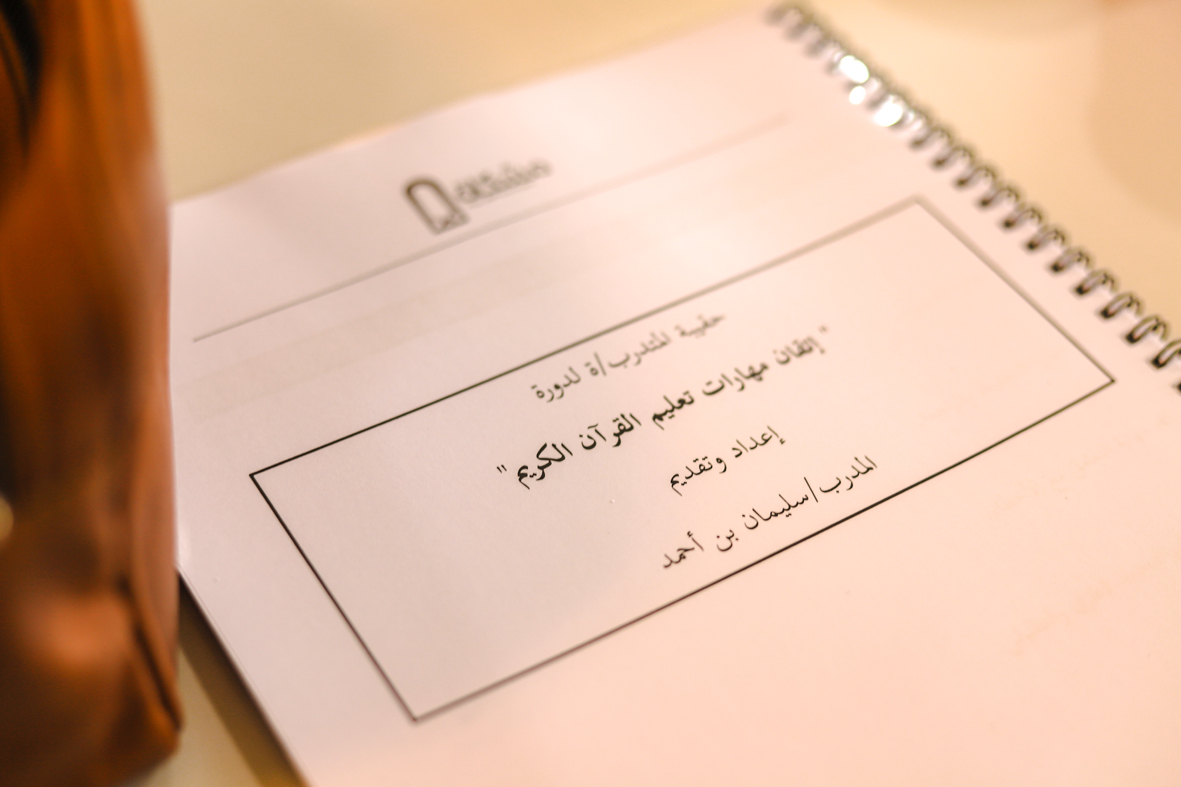 حقيبة المتدرب/ة لدورة
"إتقان مهارات تعليم القرآن الكريم"
إعداد وتقديم
المدرب/سليمان بن أحمد